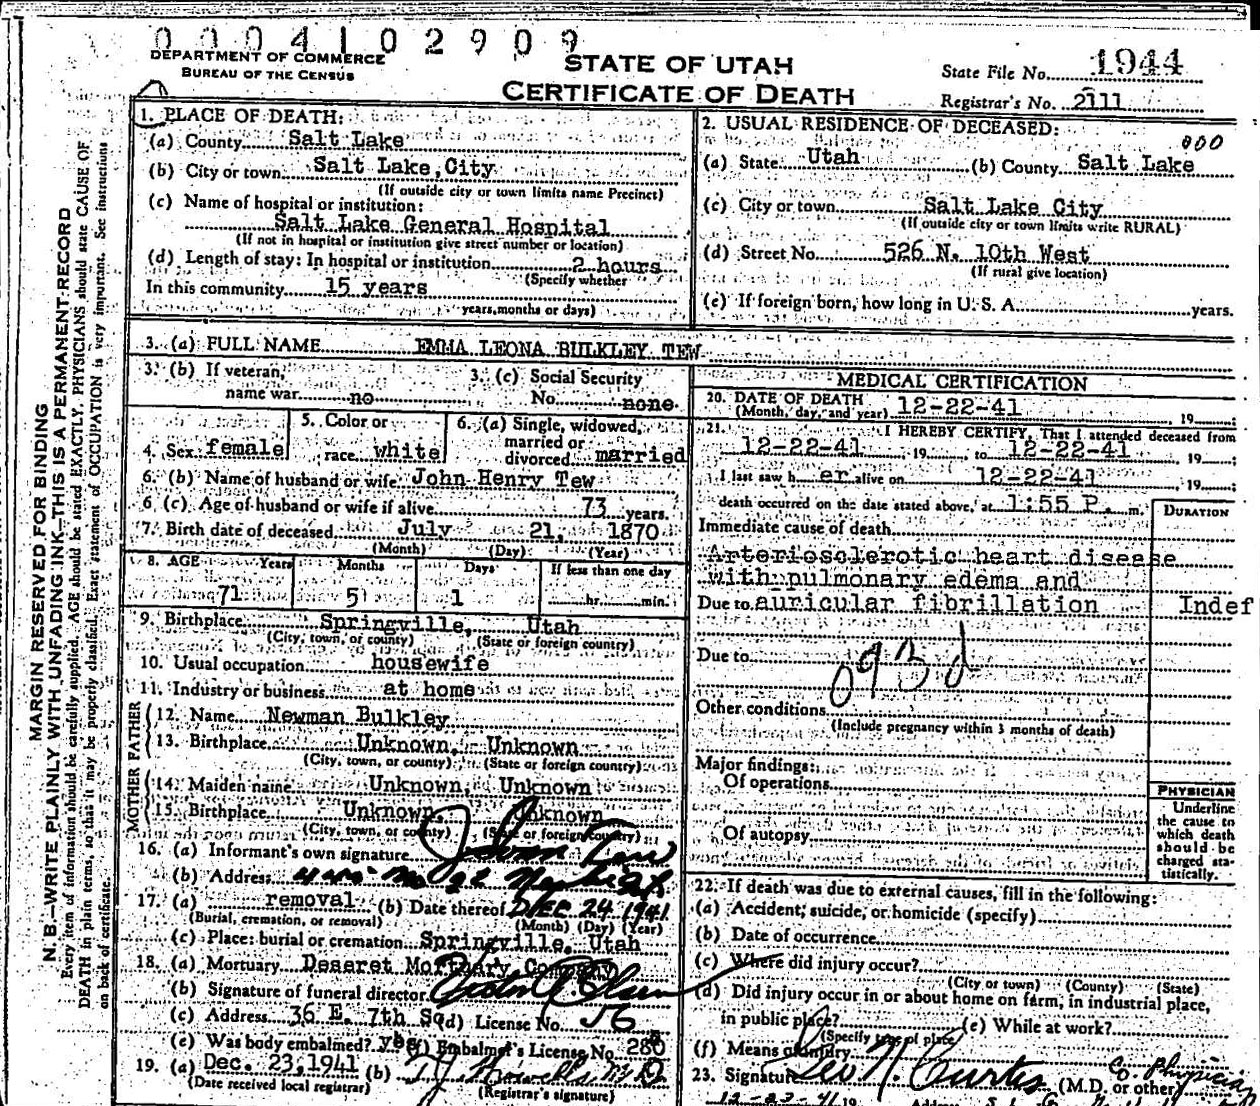 0004102909
DEPARTMENT OF COMMERCE
BUREAU OF THE CENSUS
STATE OF UTAH
CERTIFICATE OF DEATH
State File No. 1944
Registrar's No. 2111
MARGIN RESERVED FOR BINDING
N. B.—WRITE PLAINLY WITH UNFADING INK—THIS IS A PERMANENT RECORD
Every item of information should be carefully supplied. AGE should be stated EXACTLY. PHYSICIANS should state CAUSE OF
DEATH in plain terms, so that it may be properly classified. Exact statement of OCCUPATION is very important. See instructions
on back of certificate.
1. PLACE OF DEATH:
(a) County Salt Lake
(b) City or town Salt Lake City
(If outside city or town limits name Precinct)
(c) Name of hospital or institution:
Salt Lake General Hospital
(If not in hospital or institution give street number or location)
(d) Length of stay: In hospital or institution 2 hours
(Specify whether
In this community 15 years
years, months or days)
2. USUAL RESIDENCE OF DECEASED:
000
(a) State Utah (b) County Salt Lake
(c) City or town Salt Lake City
(If outside city or town limits write RURAL)
(d) Street No. 526 N. 10th West
(If rural give location)
(e) If foreign born, how long in U. S. A. years.
3. (a) FULL NAME EMMA LEONA BULKLEY TEW
3. (b) If veteran, name war no
3. (c) Social Security No. none
4. Sex female
5. Color or race white
6. (a) Single, widowed, married or divorced married
6. (b) Name of husband or wife John Henry Tew
6 (c) Age of husband or wife if alive 73 years.
7. Birth date of deceased July 21, 1870
(Month) (Day) (Year)
8. AGE Years Months Days If less than one day
71 5 1 hr. min.
9. Birthplace Springville, Utah
(City, town, or county) (State or foreign country)
10. Usual occupation housewife
11. Industry or business at home
FATHER
12. Name Newman Bulkley
13. Birthplace Unknown, Unknown
(City, town, or county) (State or foreign country)
MOTHER
14. Maiden name Unknown, Unknown
15. Birthplace Unknown, Unknown
(City, town, or county) (State or foreign country)
16. (a) Informant's own signature Tew
(b) Address
17. (a) removal (b) Date thereof DEC 24 1941
(Burial, cremation, or removal) (Month) (Day) (Year)
(c) Place: burial or cremation Springville, Utah
18. (a) Mortuary Deseret Mortuary Company
(b) Signature of funeral director Olsen
(c) Address 36 E. 7th So (d) License No. 56
(e) Was body embalmed? yes (f) Embalmer's License No. 280
19. (a) Dec. 23, 1941 (b) M.D.
(Date received local registrar) (Registrar's signature)
MEDICAL CERTIFICATION
20. DATE OF DEATH
(Month, day, and year) 12-22-41 19
21. I HEREBY CERTIFY, That I attended deceased from
12-22-41 19 to 12-22-41 19 ;
I last saw h er alive on 12-22-41 , 19 ;
death occurred on the date stated above, at 1:55 P. m.
DURATION
Immediate cause of death
Arteriosclerotic heart disease
with pulmonary edema and
Due to auricular fibrillation Indef
Due to
093d
Other conditions
(Include pregnancy within 3 months of death)
Major findings:
Of operations
Of autopsy
PHYSICIAN
Underline
the cause to
which death
should be
charged sta-
tistically.
22. If death was due to external causes, fill in the following:
(a) Accident, suicide, or homicide (specify)
(b) Date of occurrence
(c) Where did injury occur?
(City or town) (County) (State)
(d) Did injury occur in or about home on farm, in industrial place,
in public place? (e) While at work?
(Specify type of place)
(f) Means of injury
23. Signature Leo N. Curtis (M.D. or other) Co. Physician
12-23-41 19